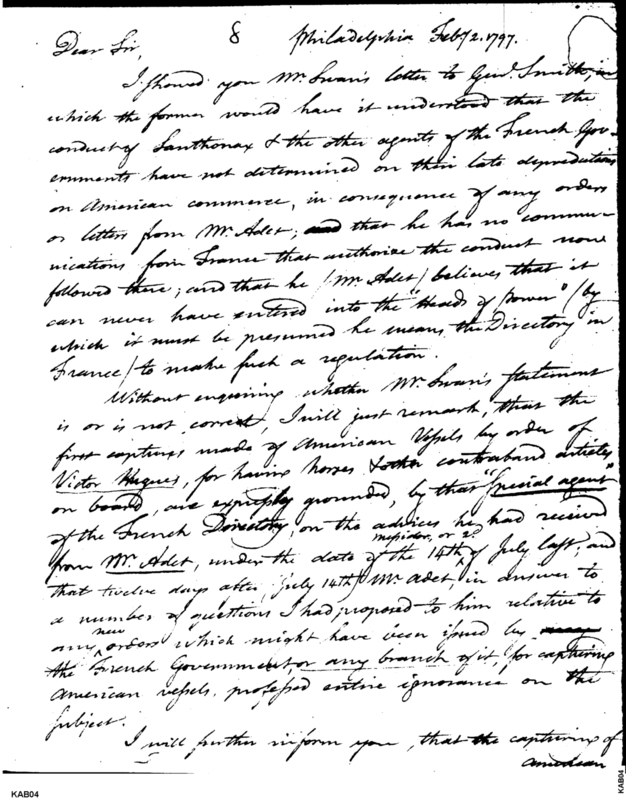 8
Philadelphia Feby 2. 1797.
Dear Sir,
I showed you Mr. Swan's letter to Genl. Smith, in
which the former would have it understood that the
conduct of Santhonax & the other agents of the French Gov-
ernments have not determined on their late depredations
on American commerce, in consequence of any orders
or letters from Mr. Adet; and that he has no commu-
nications from France that authorize the conduct now
followed there; and that he (Mr. Adet) believes that it
can never have entered into the "Heads of power" (by
which it must be presumed he means the Directory in
France) to make such a regulation.
Without enquiring whether Mr. Swan's statement
is or is not correct, I will just remark, that the
first captures made of American Vessels by order of
Victor Hugues, for having horses & other contraband articles
on board, are expressly grounded, by that "Special agent"
of the French Directory, on the advices he had received
from Mr. Adet, under the date of the 14th of July last; and
messidor, or 2d
that twelve days after, (July 14th) Mr. Adet, in answer to
a number of questions I had proposed to him relative to
any new orders which might have been issued by
the French Government, or any branch of it, for capturing
American vessels, professed entire ignorance on the
subject.
I will further inform you, that the capturing of
American
KAB04
KAB04